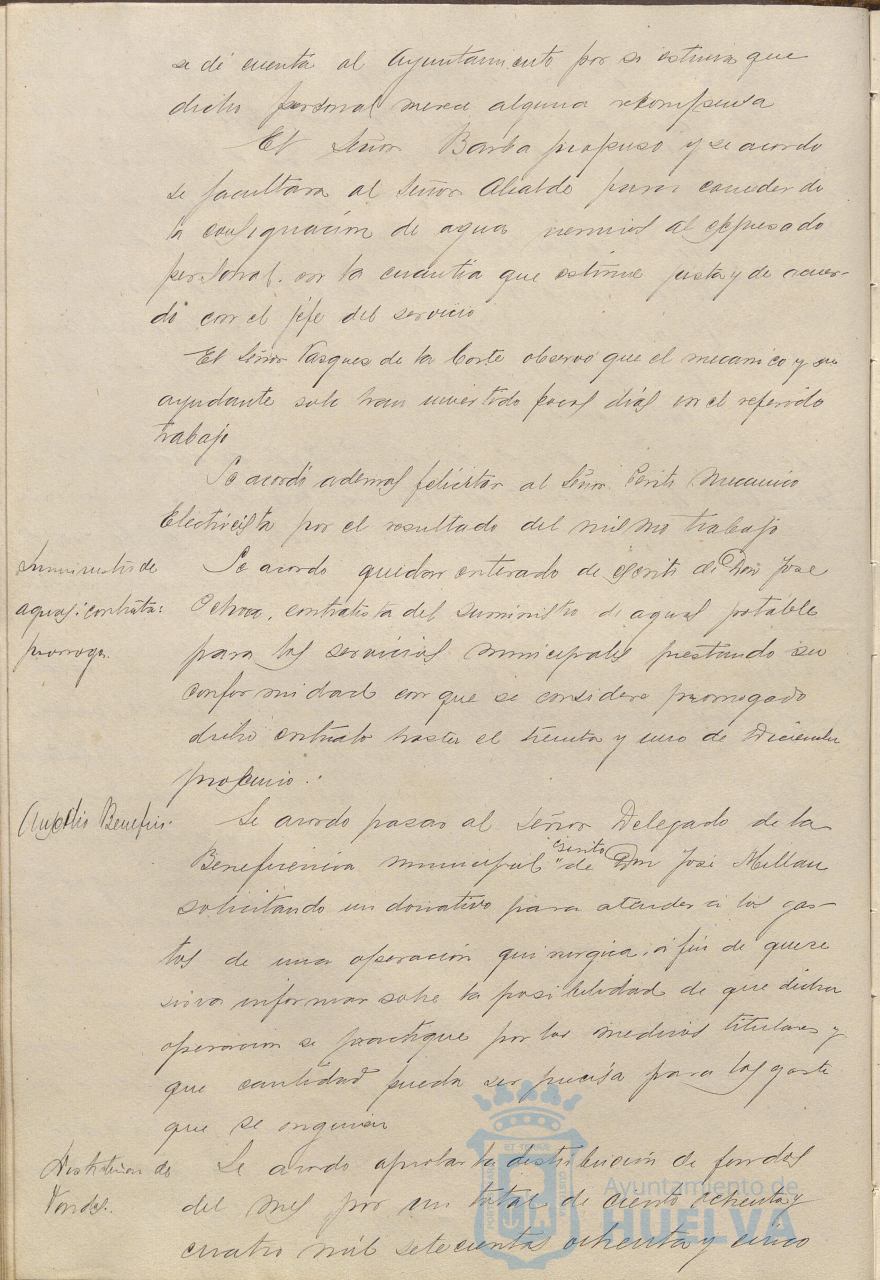 se dé cuenta al Ayuntamiento por si estima que
dicho personal merece alguna recompensa
El Señor Barba propuso y se acordo
se facultara al Señor Alcalde para conceder de
la consignación de aguas al expresado
personal en la cuantia que estime justa y de acuer-
do con el jefe del servicio
El Señor Vasquez de la Corte observó que el mecanico y su
ayudante solo han invertido pocos dias en el referido
trabajo
Se acordó ademas felicitar al Señor Perito Mecanico
Electricista por el resultado del mismo trabajo
Suministro de
aguas: contrata:
prorroga.
Se acordo quedar enterado de escrito de Don Jose
Ochoa, contratista del suministro de aguas potable
para los servicios municipales prestando su
conformidad con que se considere prorrogado
dicho contrato hasta el treinta y uno de Diciembre
proximo.
Auxilio Benefico.
Se acordo pasar al Señor Delegado de la
Beneficencia municipal escrito de Don José Millan
solicitando un donativo para atender a los gas-
tos de una operación quirurgica, a fin de que se
sirva informar sobre la posibilidad de que dicha
operacion se practique por los medicos titulares y
que cantidad pueda ser precisa para los gastos
que se originen
Distribucion de
Fondos.
Se acordo aprobar la distribución de fondos
del mes por un total de ciento ochenta y
cuatro mil setecientas ochenta y cinco
Ayuntamiento de
HUELVA